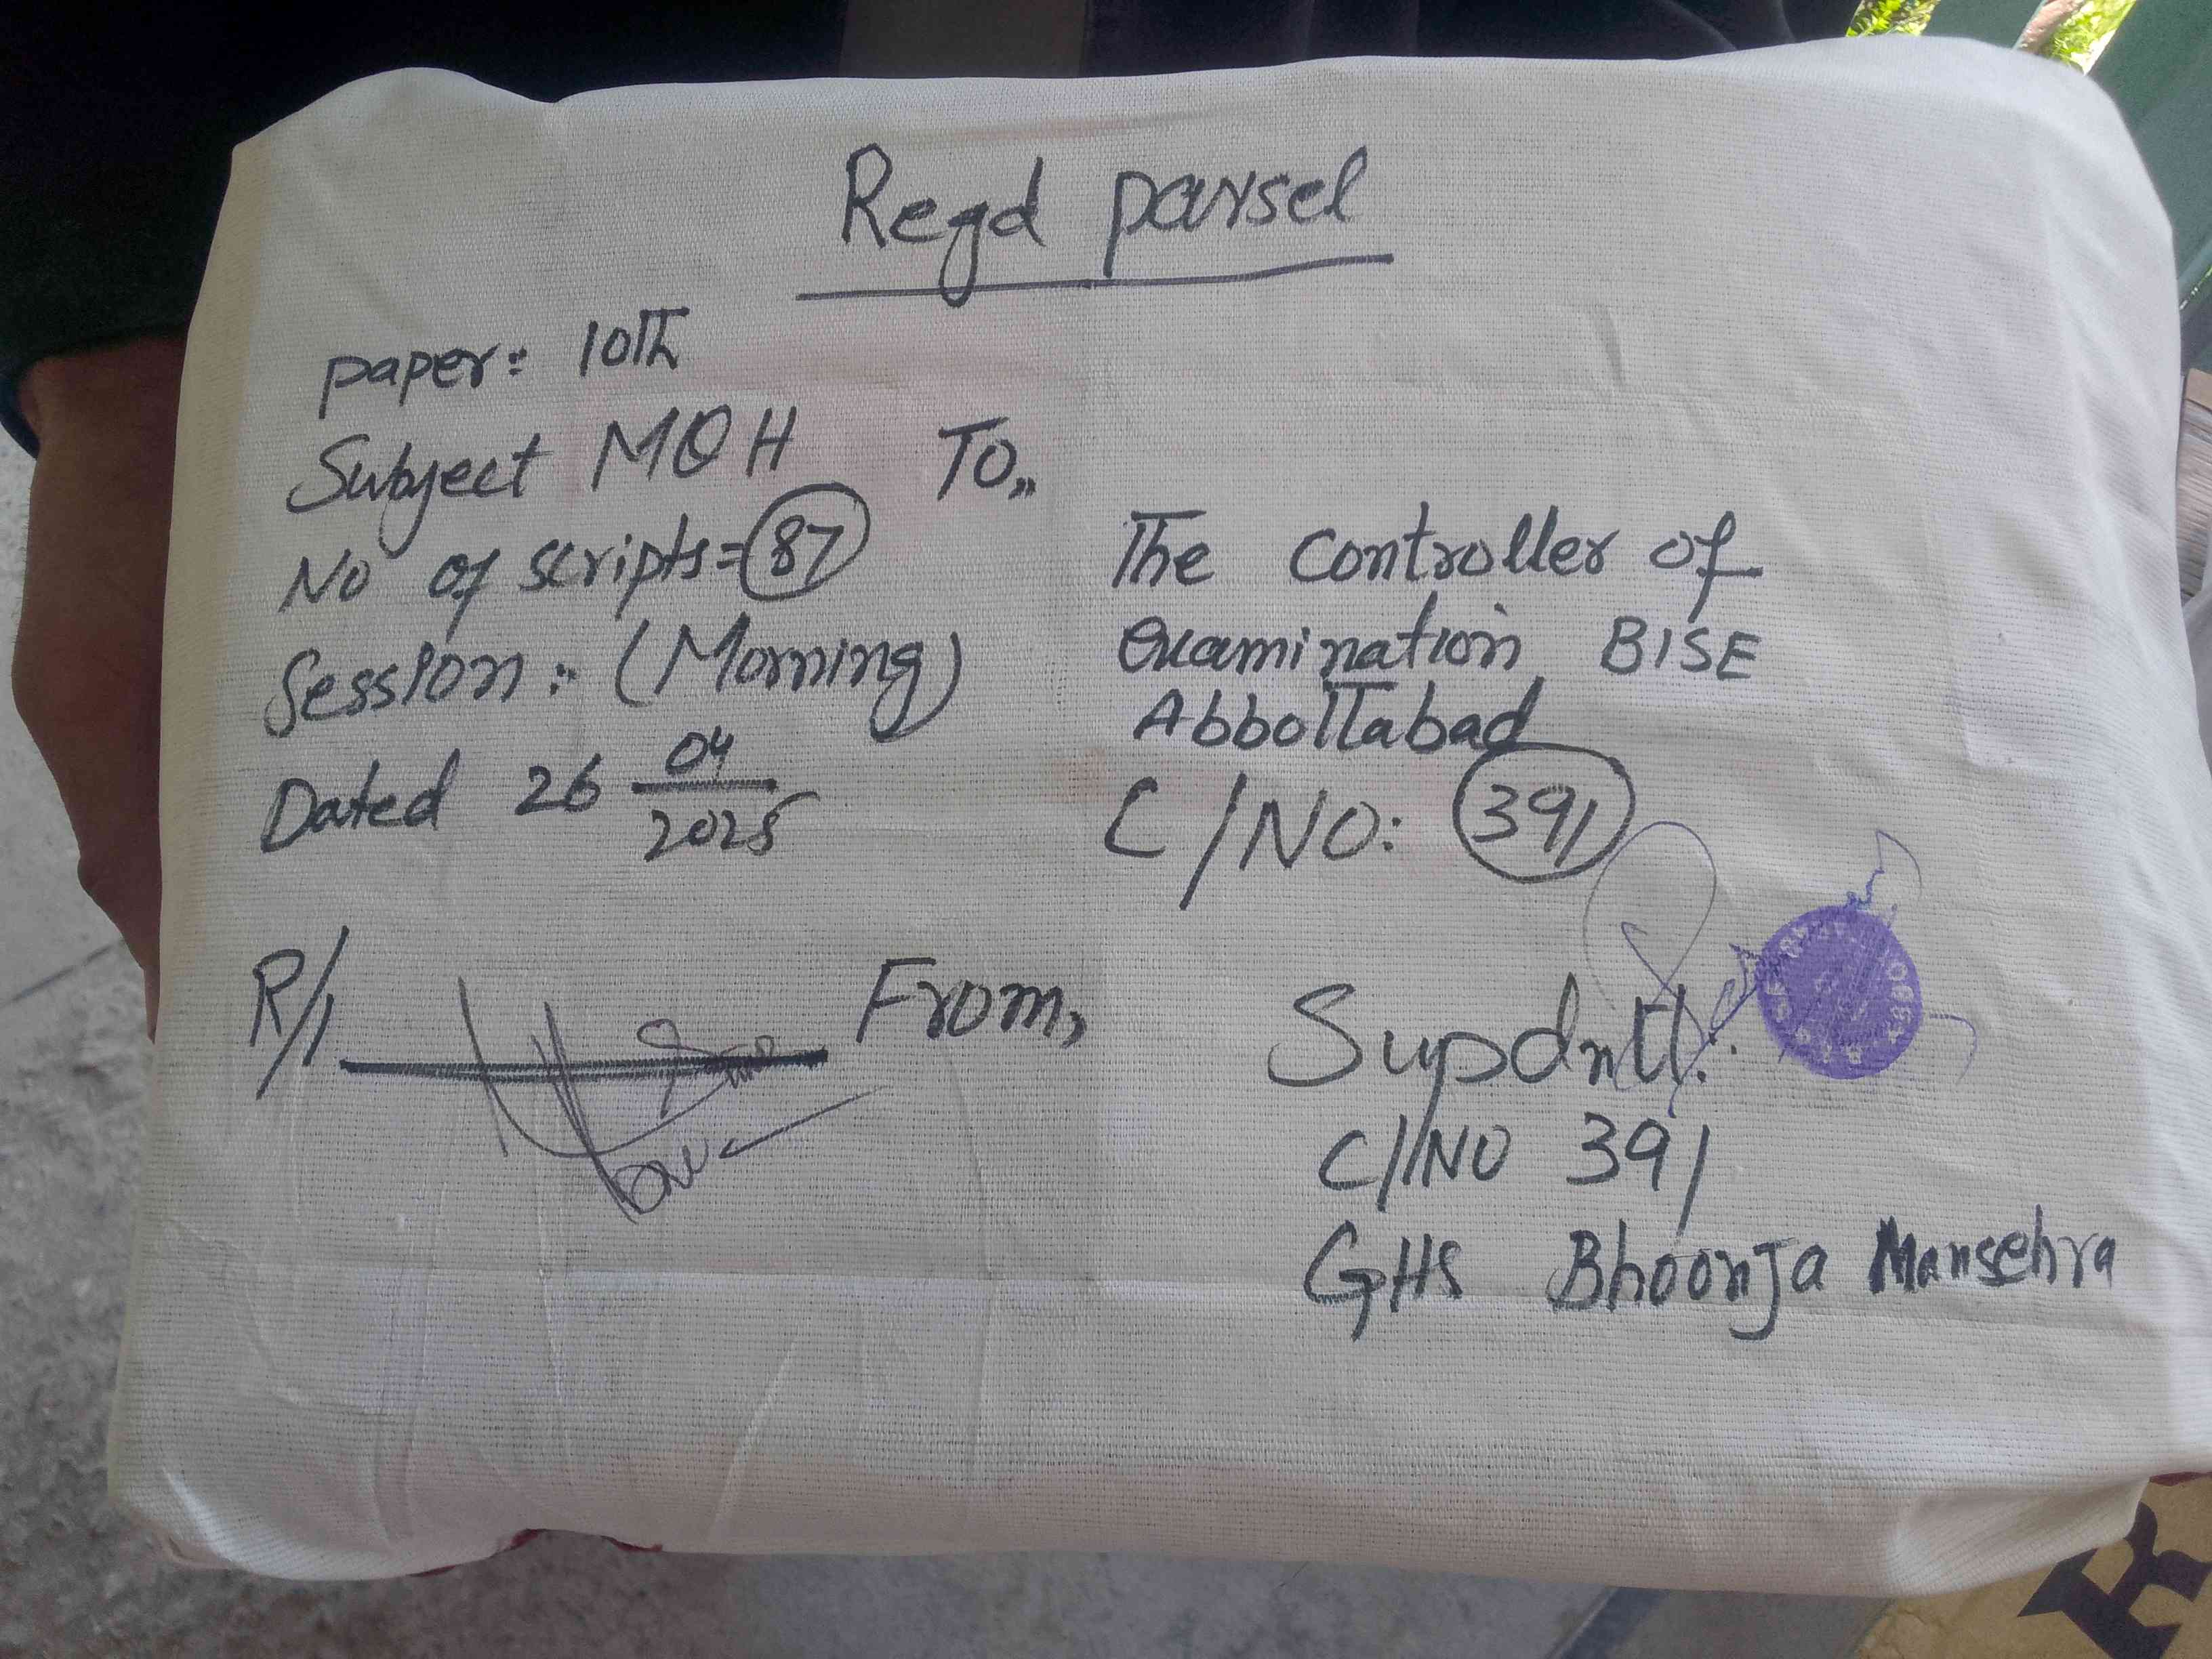 Regd parsel
paper:- 10th
Subject MQH
No of scripts=87
Session:- (Morning)
Dated 26 04/2025
To,,
The Controller of
examination BISE
Abbottabad
C/NO: 391
R/I
From,
Supdntt:
C/NO 391
GHS Bhoonja Mansehra